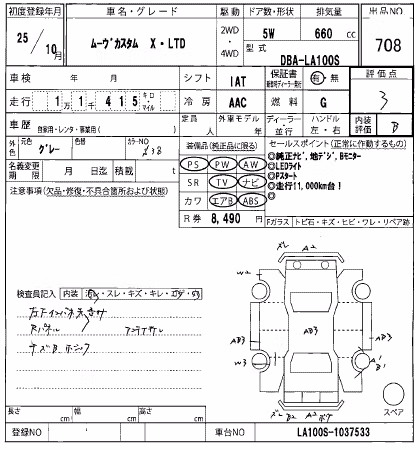 初度登録年月 車名・グレード 駆動 ドア数・形状 排気量 出品NO
25年 10月 ムーヴカスタム X・LTD 2WD・4WD 5W 660cc 708
型式 DBA-LA100S
車検 年 月 シフト IAT 保証書 有・無 評価点
走行 1万1千415キロ・マイル 冷房 AAC 燃料 G 3
車歴 自家用・レンタ・事業用( ) 定員 人 外車モデル 年 ディーラー・並行 ハンドル 左・右 内装評価 B
外色 元色 グレー 色替 カラーNO
装備品(純正品に限る) セールスポイント(正常に作動するもの)
名義変更期限 月 日迄 積載 t
PS PW AW
SR TV ナビ
カワ エアB ABS
R券 8,490円
◎純正ナビ,地デジ,Bモニター
◎LEDライト
◎Pスタート
◎走行11,000km台!
Fガラス トビ石・キズ・ヒビ・ワレ・リペア跡
注意事項(欠品・修復・不具合箇所および状態)
検査員記入 内装
A2
W2
AD3
AD3
AD3
W3
A1
B1
B2
A2
スペア
長さ cm 幅 cm 高さ cm
登録NO 車台NO LA100S-1037533